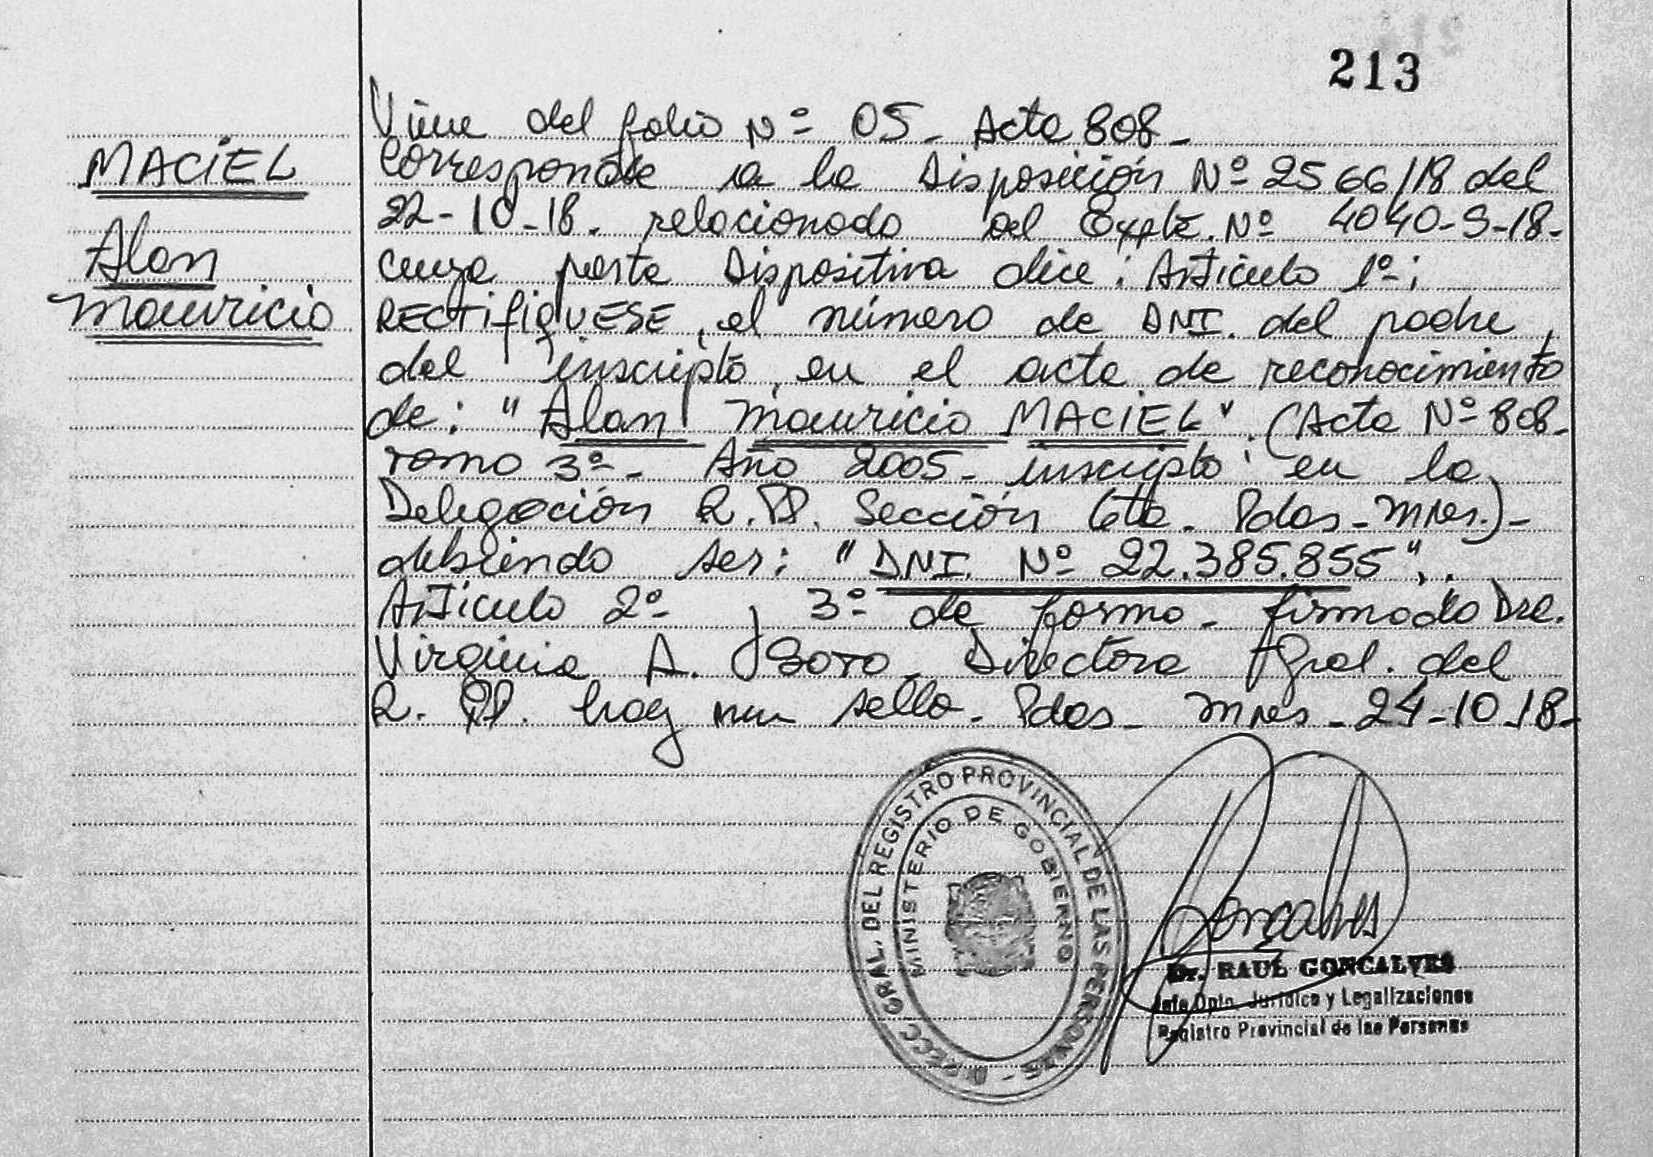 213
MACIEL
Alan
Mauricio
Viene del folio Nº 05- Acta 808-
Corresponde a la Disposición Nº 2566/18 del
22-10-18. relacionado al Expte. Nº 4040-S-18-
cuya parte Dispositiva dice: Artículo 1º:
RECTIFIQUESE, el número de DNI. del padre,
del inscripto, en el acta de reconocimiento
de: "Alan Mauricio MACIEL". (Acta Nº 808-
Tomo 3º- Año 2005- inscripto en la
Delegación R.PP. Sección 6ta. Pdas-Mnes.)-
debiendo ser: "DNI. Nº 22.385.855",.
Artículo 2º y 3º de forma- firmado Dra.
Virginia A. Soto Directora Gral. del
R. PP. hay un sello- Pdas- Mnes- 24-10-18-
DIRECC. GRAL. DEL REGISTRO PROVINCIAL DE LAS PERSONAS -
MINISTERIO DE GOBIERNO
Goncalves
Dr. RAUL GONCALVES
Jefe Dpto. Jurídico y Legalizaciones
Registro Provincial de las Personas